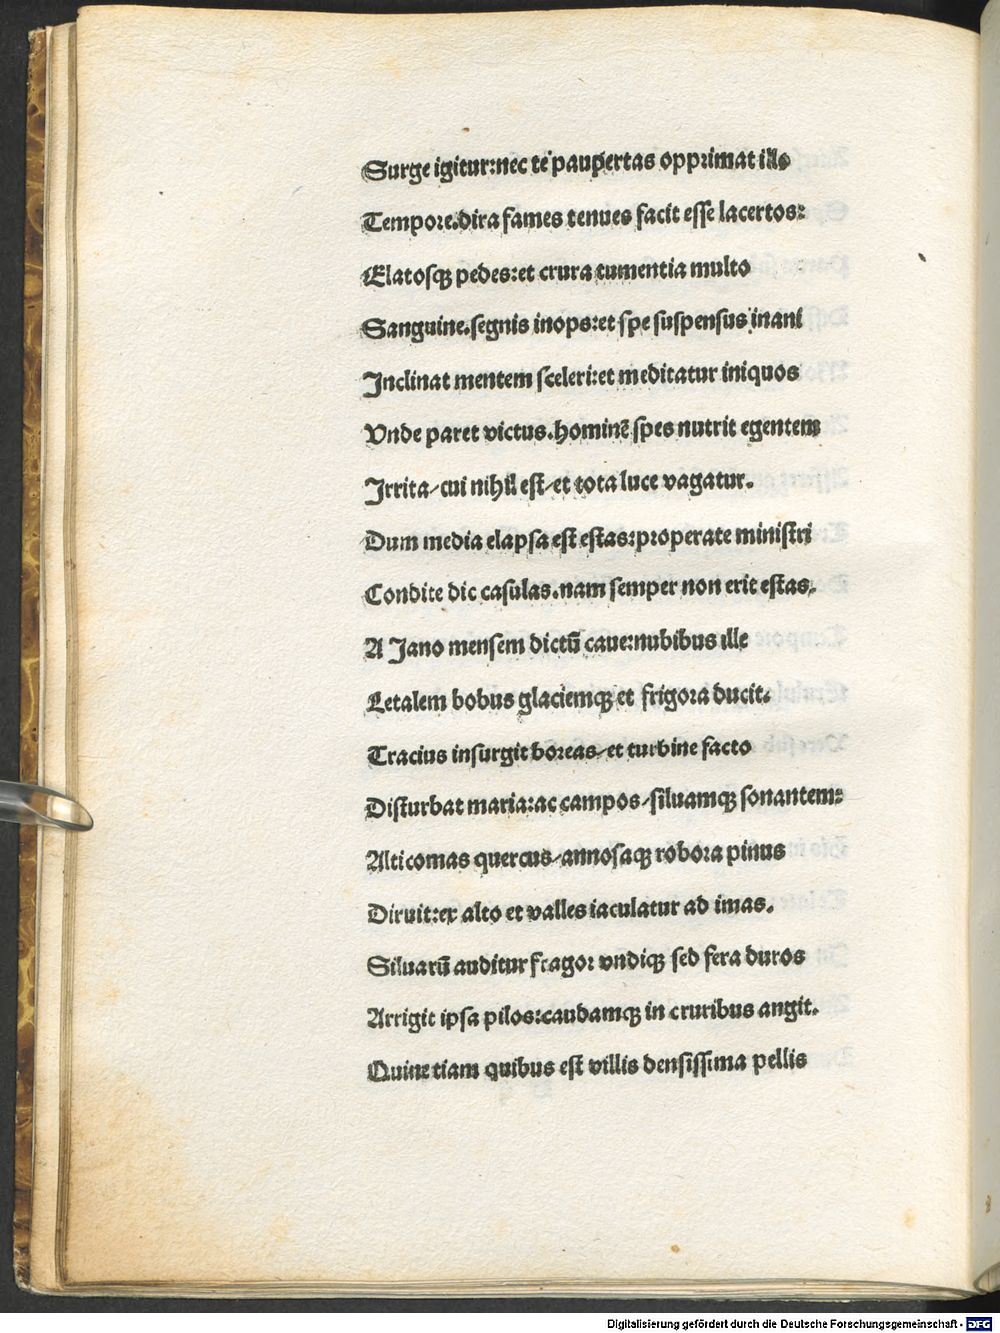 Surge igitur:nec te paupertas opprimat illo
Tempore.dira fames tenues facit esse lacertos:
Elatosqꝫ pedes:et crura tumentia multo
Sanguine.segnis inops:et spe suspensus inani
Inclinat mentem sceleri:et meditatur iniquos
Vnde paret victus.hominē spes nutrit egentem
Irrita/cui nihil est/et tota luce vagatur.
Dum media elapsa est estas:properate ministri
Condite dic casulas.nam semper non erit estas.
A Jano mensem dictū caue:nubibus ille
Letalem bobus glaciemqꝫ et frigora ducit.
Tracius insurgit boreas/et turbine facto
Disturbat maria:ac campos/siluamqꝫ sonantem:
Alticomas quercus/annosaqꝫ robora pinus
Diruit:ex alto et valles iaculatur ad imas.
Siluarū auditur fragor vndiqꝫ sed fera duros
Arrigit ipsa pilos:caudamqꝫ in cruribus angit.
Quinetiam quibus est villis densissima pellis
Digitalisierung gefördert durch die Deutsche Forschungsgemeinschaft - DFG